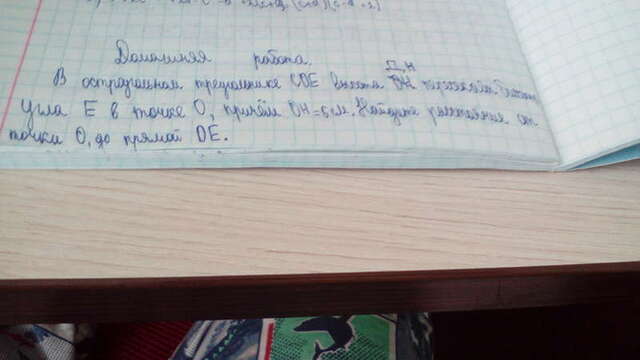 Домашняя работа.
Д Н
В остроугольном треугольнике CDE высота
угла E в точке O, причём OH=6см. Найдите расстояние от
точки O, до прямой DE.